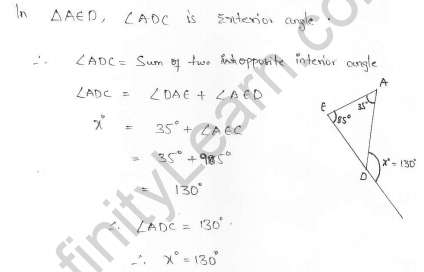 In ΔAED, ∠ADC is Exterior angle.
∴ ∠ADC = Sum of two opposite interior angle
∠ADC = ∠DAE + ∠AED
x° = 35° + ∠AEC
= 35° + 95°
= 130°
∴ ∠ADC = 130°.
∴ x° = 130°
A
35°
E
85°
D
x° = 130°
finityLearn.com